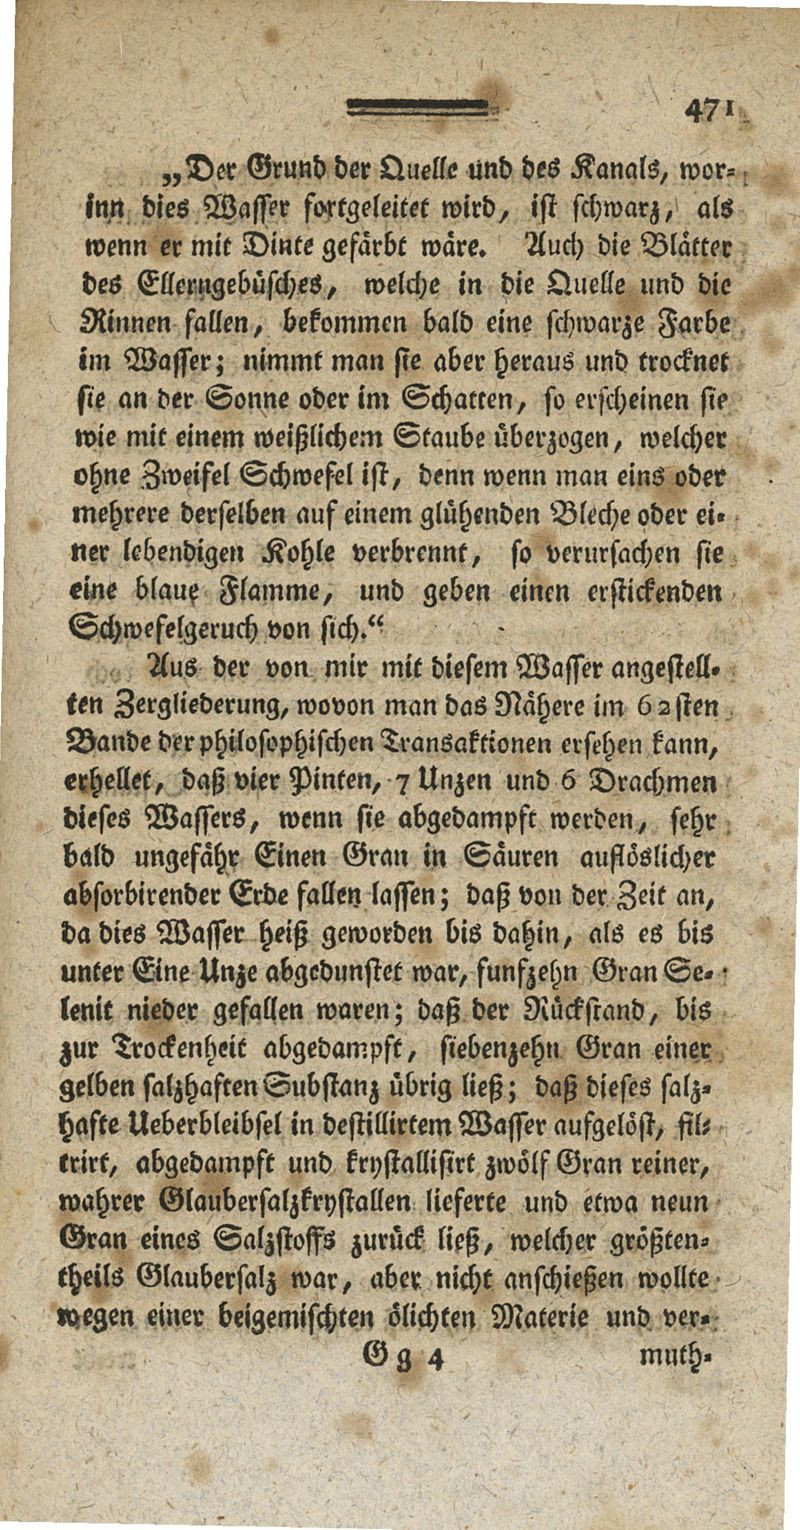 471
„Der Grund der Quelle und des Kanals, wor-
inn dies Wasser fortgeleitet wird, ist schwarz, als
wenn er mit Dinte gefärbt wäre. Auch die Blätter
des Ellerngebüsches, welche in die Quelle und die
Rinnen fallen, bekommen bald eine schwarze Farbe
im Wasser; nimmt man sie aber heraus und trocknet
sie an der Sonne oder im Schatten, so erscheinen sie
wie mit einem weißlichem Staube überzogen, welcher
ohne Zweifel Schwefel ist, denn wenn man eins oder
mehrere derselben auf einem glühenden Bleche oder ei-
ner lebendigen Kohle verbrennt, so verursachen sie
eine blaue Flamme, und geben einen erstickenden
Schwefelgeruch von sich.“
Aus der von mir mit diesem Wasser angestell-
ten Zergliederung, wovon man das Nähere im 62sten
Bande der philosophischen Transaktionen ersehen kann,
erhellet, daß vier Pinten, 7 Unzen und 6 Drachmen
dieses Wassers, wenn sie abgedampft werden, sehr
bald ungefähr Einen Gran in Säuren auflöslicher
absorbirender Erde fallen lassen; daß von der Zeit an,
da dies Wasser heiß geworden bis dahin, als es bis
unter Eine Unze abgedunstet war, funfzehn Gran Se-
lenit nieder gefallen waren; daß der Rückstand, bis
zur Trockenheit abgedampft, siebenzehn Gran einer
gelben salzhaften Substanz übrig ließ; daß dieses salz-
hafte Ueberbleibsel in destillirtem Wasser aufgelöst, fil-
trirt, abgedampft und krystallisirt zwölf Gran reiner,
wahrer Glaubersalzkrystallen lieferte und etwa neun
Gran eines Salzstoffs zurück ließ, welcher größten-
theils Glaubersalz war, aber nicht anschießen wollte
wegen einer beigemischten ölichten Materie und ver-
Gg 4 muth-